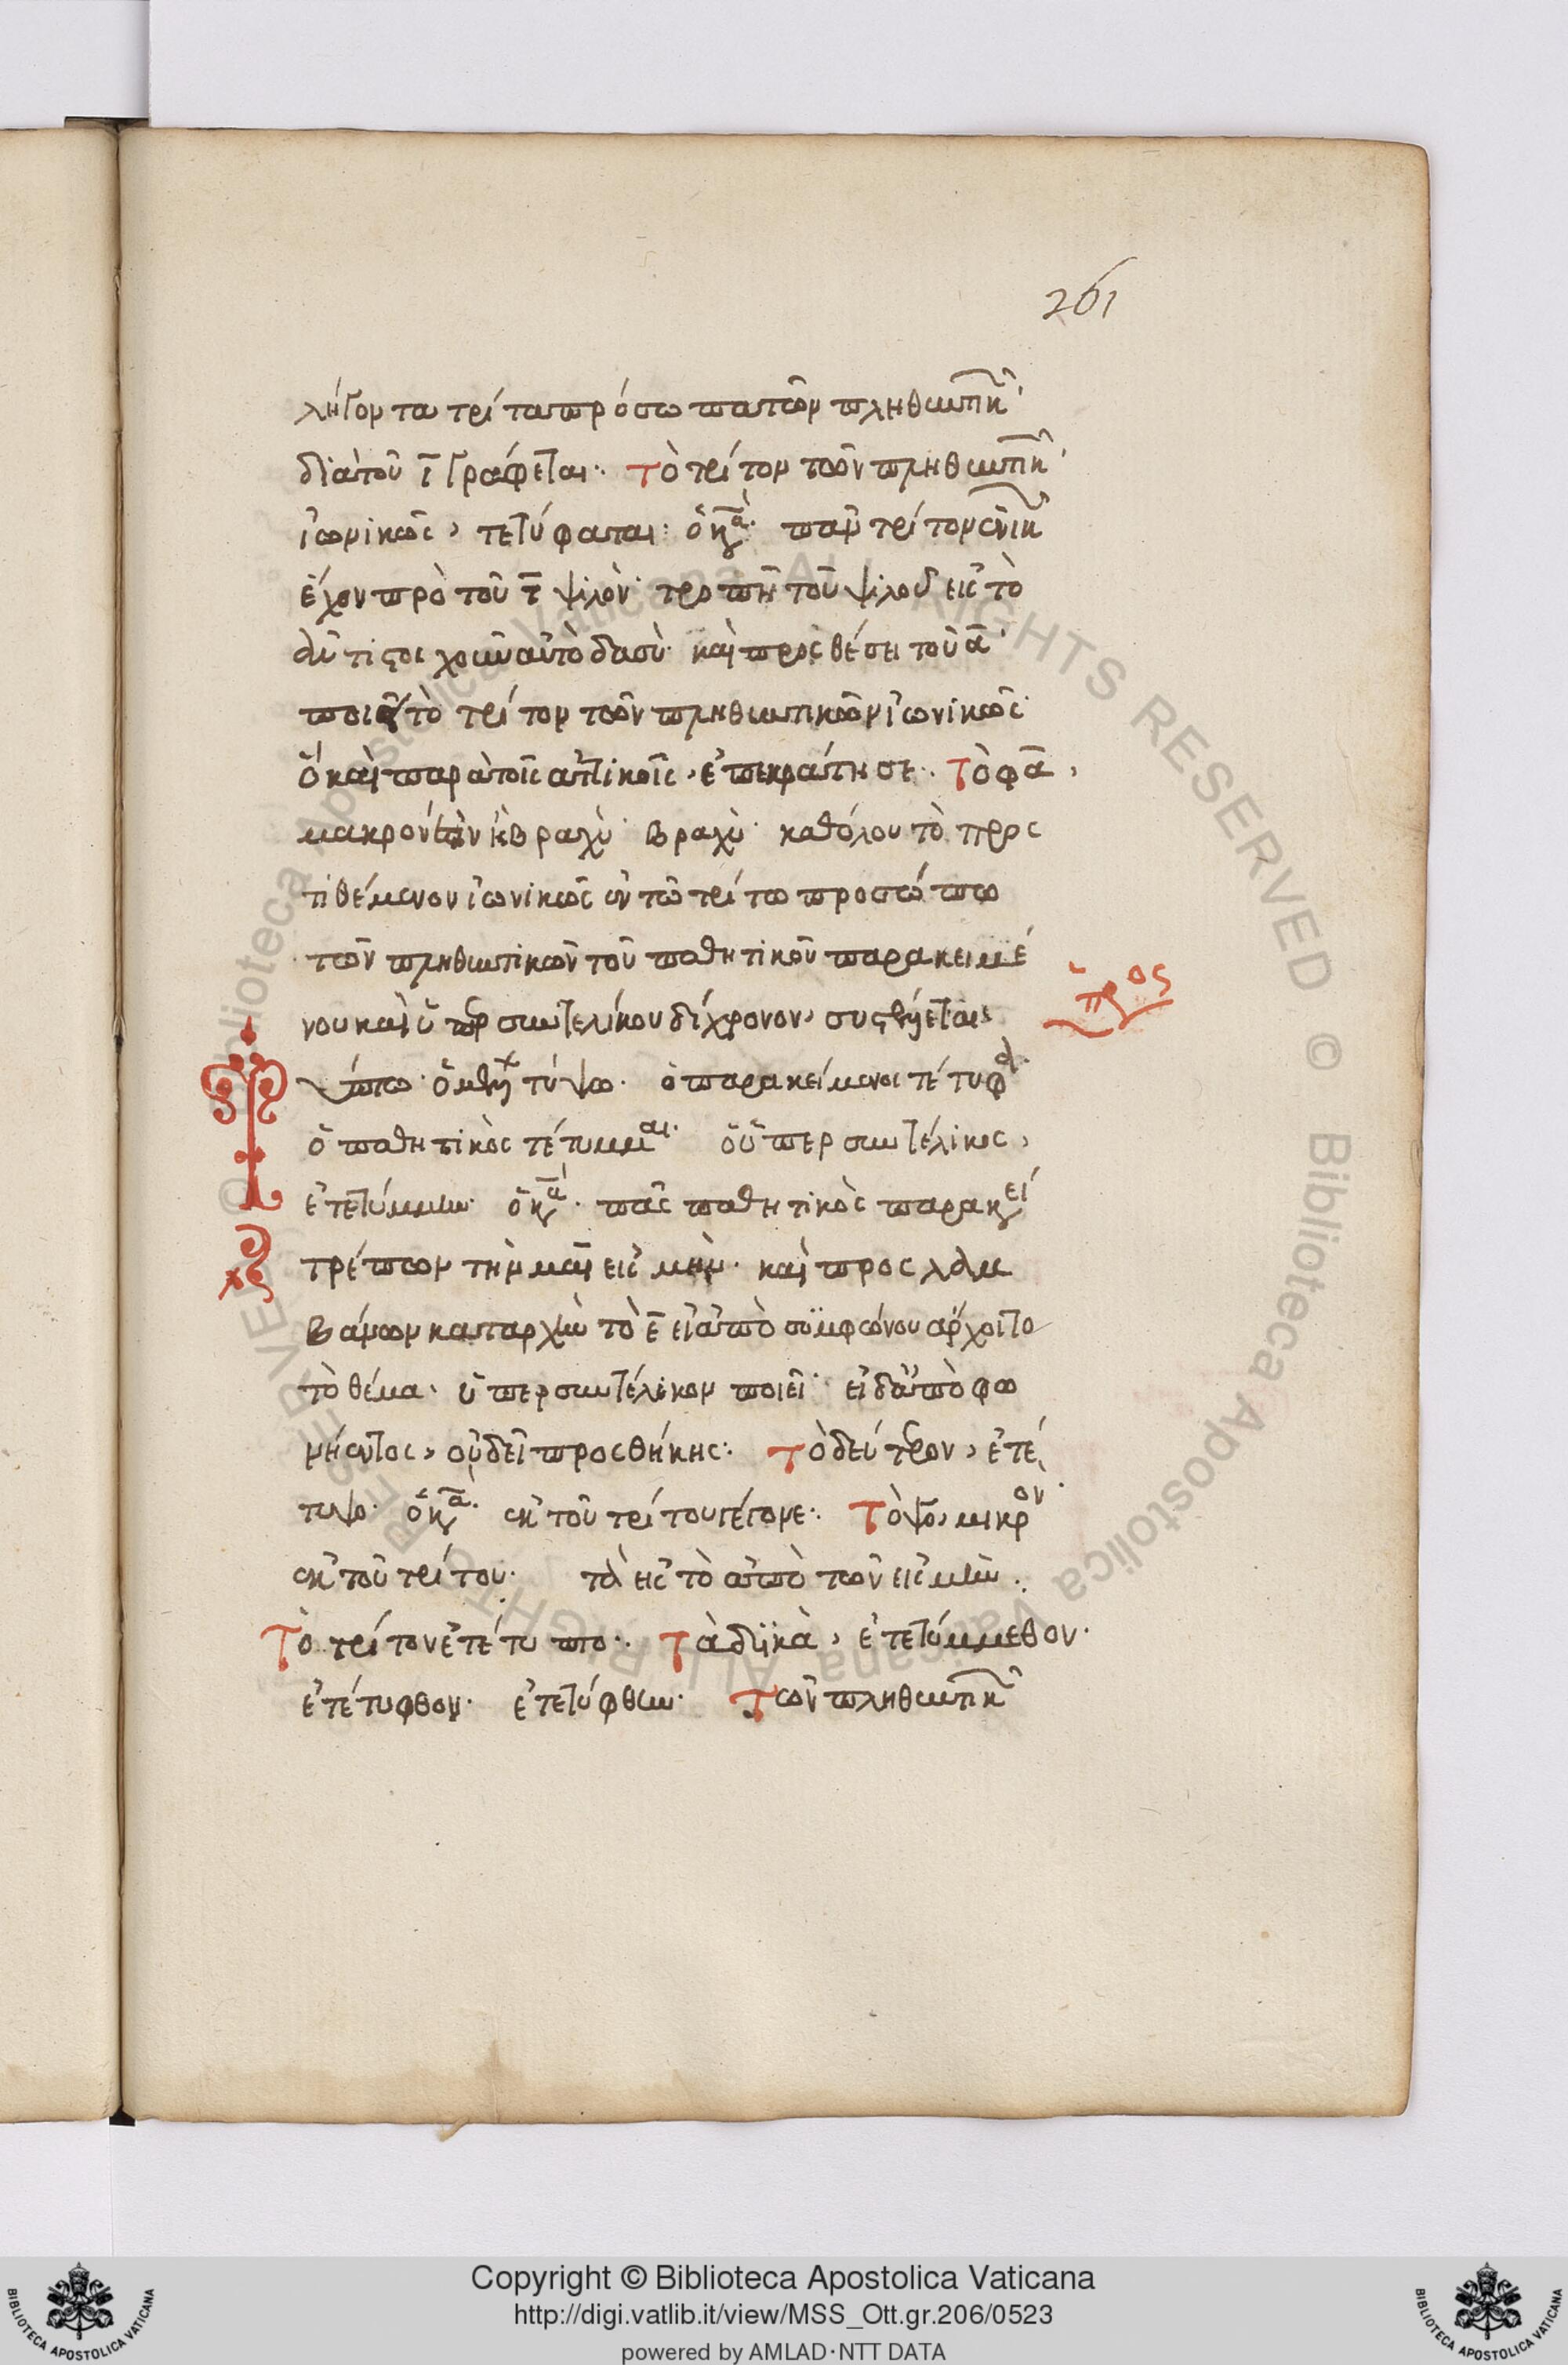 261
λήγοντα τρίτα πρόσωπα τῶν πληθυντικ
διὰ τοῦ ῑ γράφεται: Τὸ τρίτον τῶν πληθυντικ
ἰωνικῶς, τετύφαται: ὁ κα πᾶν τρίτον ἑνικ
ἔχον πρὸ τοῦ τ ψιλὸν τροπῆ τοῦ ψιλοῦ εἰς τὸ
ἀντιστοιχοῦν αὐτὸ δασὺ καὶ προςθέσει τοῦ α
ποιεῖ τὸ τρίτον τῶν πληθυντικῶν ἰωνικῶς
ὃ καὶ παρὰ τοῖς ἀττικοῖς, ἐπεκράτησε. Τὸ φα,
μακρὸν ἐστὶν ἢ βραχὺ βραχὺ καθόλου τὸ προς
τιθέμενον ἰωνικῶς ἐν τῶ τρίτω προσώπω
τῶν πληθυντικῶν τοῦ παθητικοῦ παρακειμέ
νου καὶ ὑπερσυντελίκου δίχρονον, συστέλλεται:
ὑπερος
Τύπτω ὁ μέλλ τύψω. ὁ παρακείμενος τέτυφα
ὁ παθητικὸς τέτυμμαι. ὁ ὑπερσυντέλικος,
ἐτετύμμην ὁ κα. πᾶς παθητικὸς παρακεί
τρέπων τὴν μαι εἰς μην. καὶ προςλαμ
βάνων καταρχὴν τὸ ε εἰ ἀπὸ συμφώνου ἄρχοιτο
τὸ θέμα. ὑπερσυντέλικον ποιεῖ εἰ δ' ἀπὸ φω
νήεντος, οὐ δεῖ προςθήκης: Τὸ δεύτερον, ἐτέ
τυψο. ὁ κα. ἐκ τοῦ τρίτου γέγονε: Τὸ ψο, μικρον
ἐκ τοῦ τρίτου. τὰ ἑξ τὸ ἀπὸ τῶν εἰς μην.
Τὸ τρίτον ἐτέτυπτο: Τὰ δυϊκὰ, ἐτετύμμεθον.
ἐτέτυφθον. ἐτετύφθην. Τῶν πληθυντικ
Copyright © Biblioteca Apostolica Vaticana
http://digi.vatlib.it/view/MSS_Ott.gr.206/0523
powered by AMLAD·NTT DATA